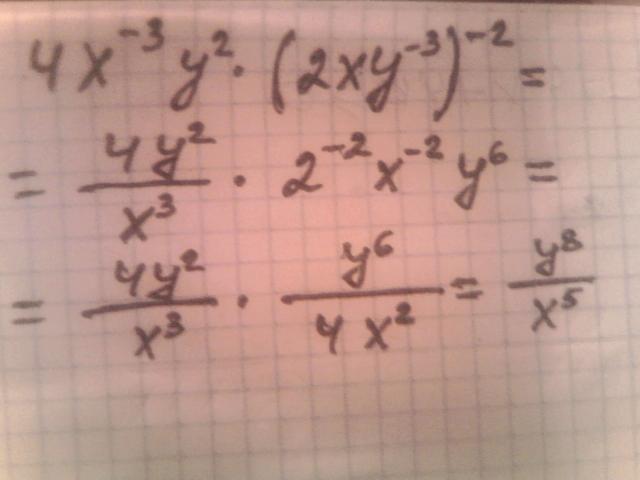 4x⁻³y² · (2xy⁻³)⁻² =
= 4y²/x³ · 2⁻²x⁻²y⁶ =
= 4y²/x³ · y⁶/4x² = y⁸/x⁵